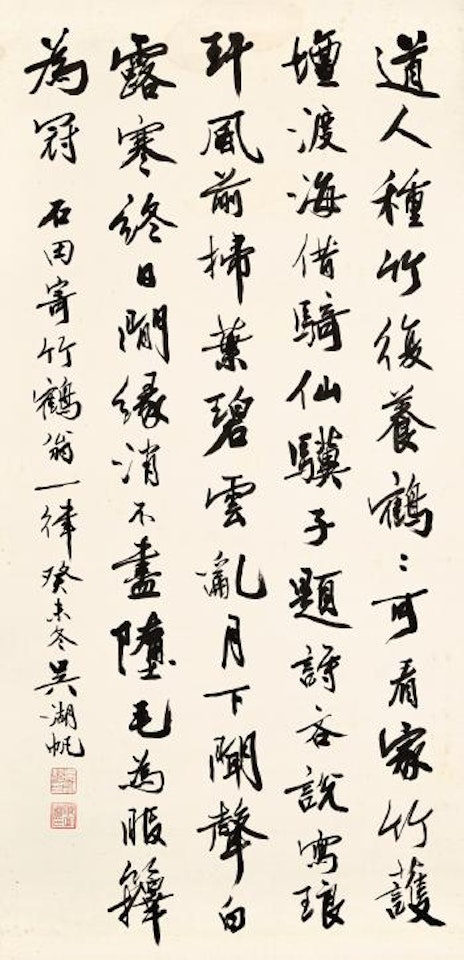 道人種竹復養鶴〻可看家竹護
壇渡海借騎仙驥子題詩吝說寫琅
玕風前掃葉碧雲亂月下聞聲白
露寒終日閒緣消不盡墮毛為服籜
為冠 石田寄竹鶴翁一律癸未冬吳湖帆